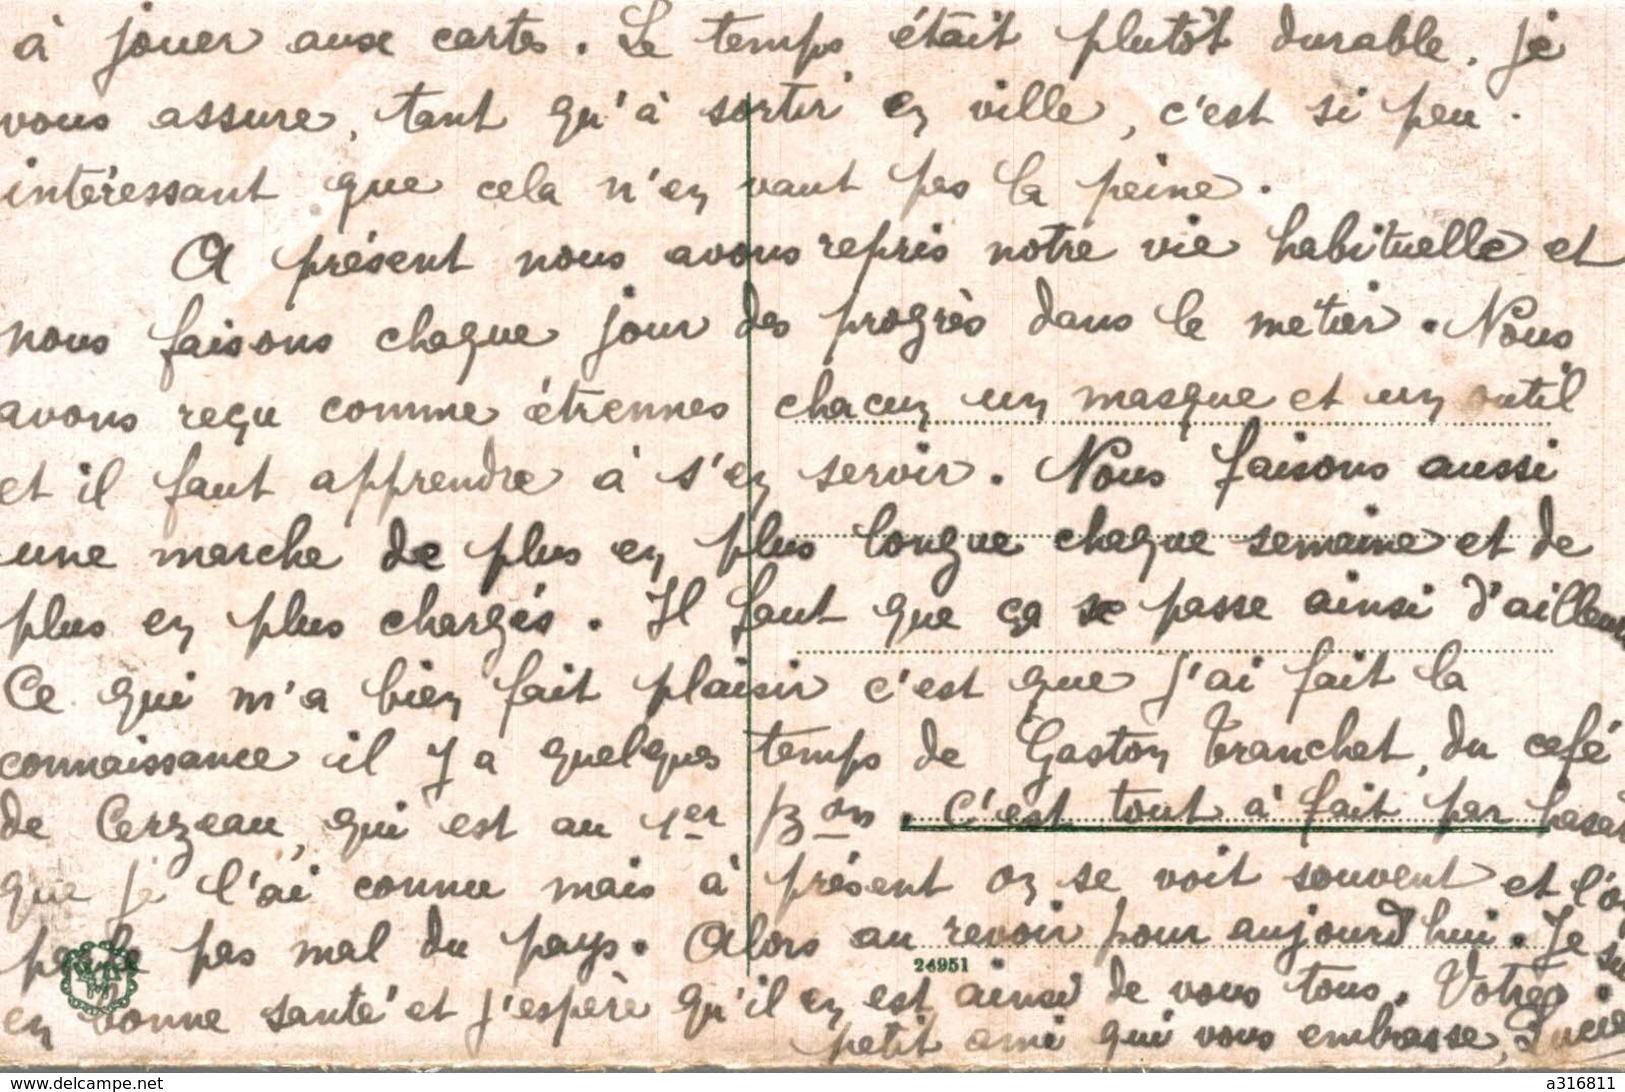 à jouer aux cartes. Le temps était plutôt durable, je
vous assure, tant qu'à sortir en ville, c'est si peu
intéressant que cela n'en vaut pas la peine.
A présent nous avons repris notre vie habituelle et
nous faisons chaque jour des progrès dans le metier. Nous
avons reçu comme étrennes chacun un masque et un outil
et il faut apprendre à s'en servir. Nous faisons aussi
une marche de plus en plus longue chaque semaine et de
plus en plus chargés. Il faut que ça se passe ainsi d'ailleurs
Ce qui m'a bien fait plaisir c'est que j'ai fait la
connaissance il y a quelques temps de Gaston Tranchet, du café
de Cerzeau, qui est au 1er Bon. C'est tout à fait par hasar
que je l'ai connu mais à présent on se voit souvent et l'on
parle pas mal du pays. Alors au revoir pour aujourd'hui. Je sui
en bonne santé et j'espère qu'il en est ainsi de vous tous. Votre
petit ami qui vous embrasse,
24951
www.delcampe.net
a316811